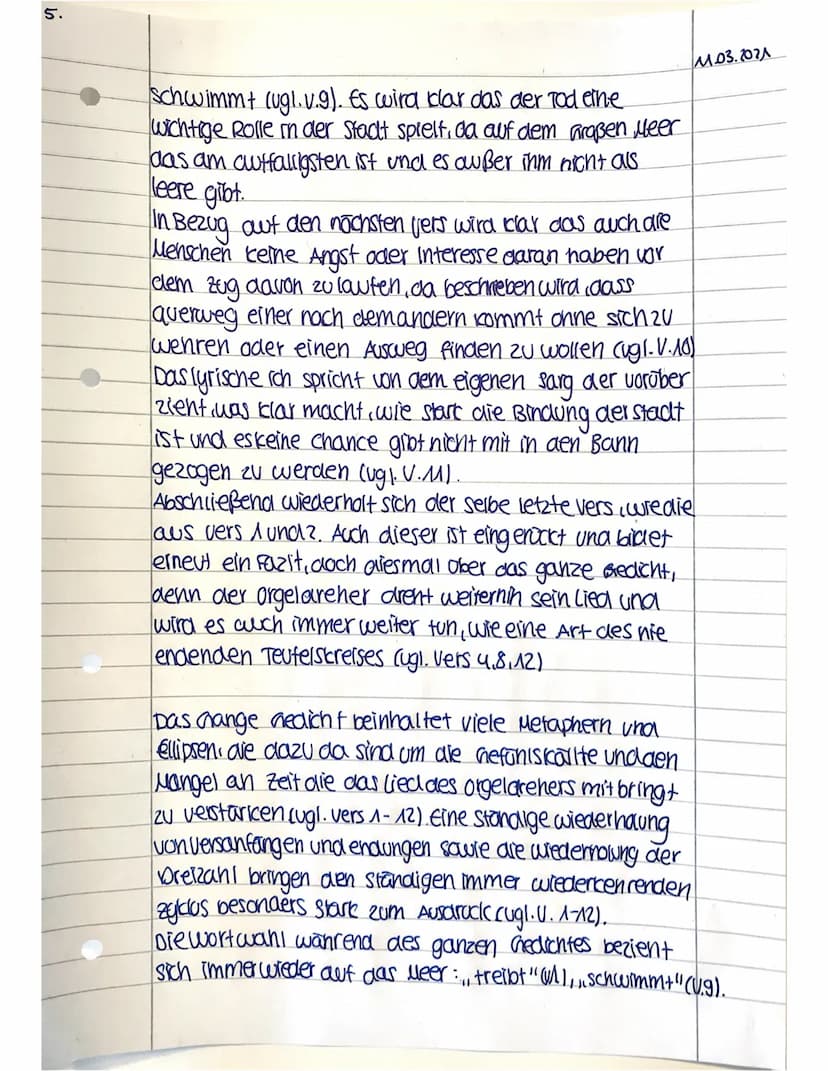 5.
11.03.2021
schwimmt (vgl. V.9). Es wird klar das der Tod eine
wichtige Rolle in der Stadt spielt, da auf dem großen Meer
das am auffälligsten ist und es außer ihm nicht als
leere gibt.
In Bezug auf den nächsten Vers wird klar das auch die
Menschen keine Angst oder Interesse daran haben vor
dem Zug davon zu laufen, da beschrieben wird, dass
querweg einer nach dem andern kommt ohne sich zu
wehren oder einen Ausweg finden zu wollen (vgl. V.10)
Das lyrische ich spricht von dem eigenen Sarg der vorüber
zieht, was klar macht, wie stark die Bindung der Stadt
ist und es keine Chance gibt nicht mit in den Bann
gezogen zu werden (vgl. V.11).
Abschließend wiederholt sich der selbe letzte Vers, wie die
aus Vers 1 und 2. Auch dieser ist eingerückt und bildet
erneut ein Fazit, doch diesmal über das ganze Gedicht,
denn der Orgeldreher dreht weiterhin sein Lied und
wird es auch immer weiter tun, wie eine Art des nie
endenden Teufelskreises (vgl. Vers 4,8,12)
Das Gange Gedicht beinhaltet viele Metaphern und
Ellipsen, die dazu da sind um die Gefühlskälte und den
Mangel an Zeit die das Lied des Orgeldrehers mit bringt
zu verstärken (vgl. Vers 1-12). Eine ständige wiederholung
von Versanfängen und endungen sowie die wiederholung der
Dreizahl bringen den ständigen immer wiederkehrenden
Zyklus besonders stark zum Ausdruck (vgl. V. 1-12).
Die Wortwahl während des ganzen Gedichtes bezieht
sich immer wieder auf das Meer: „treibt" (V.1), „schwimmt" (V.9).